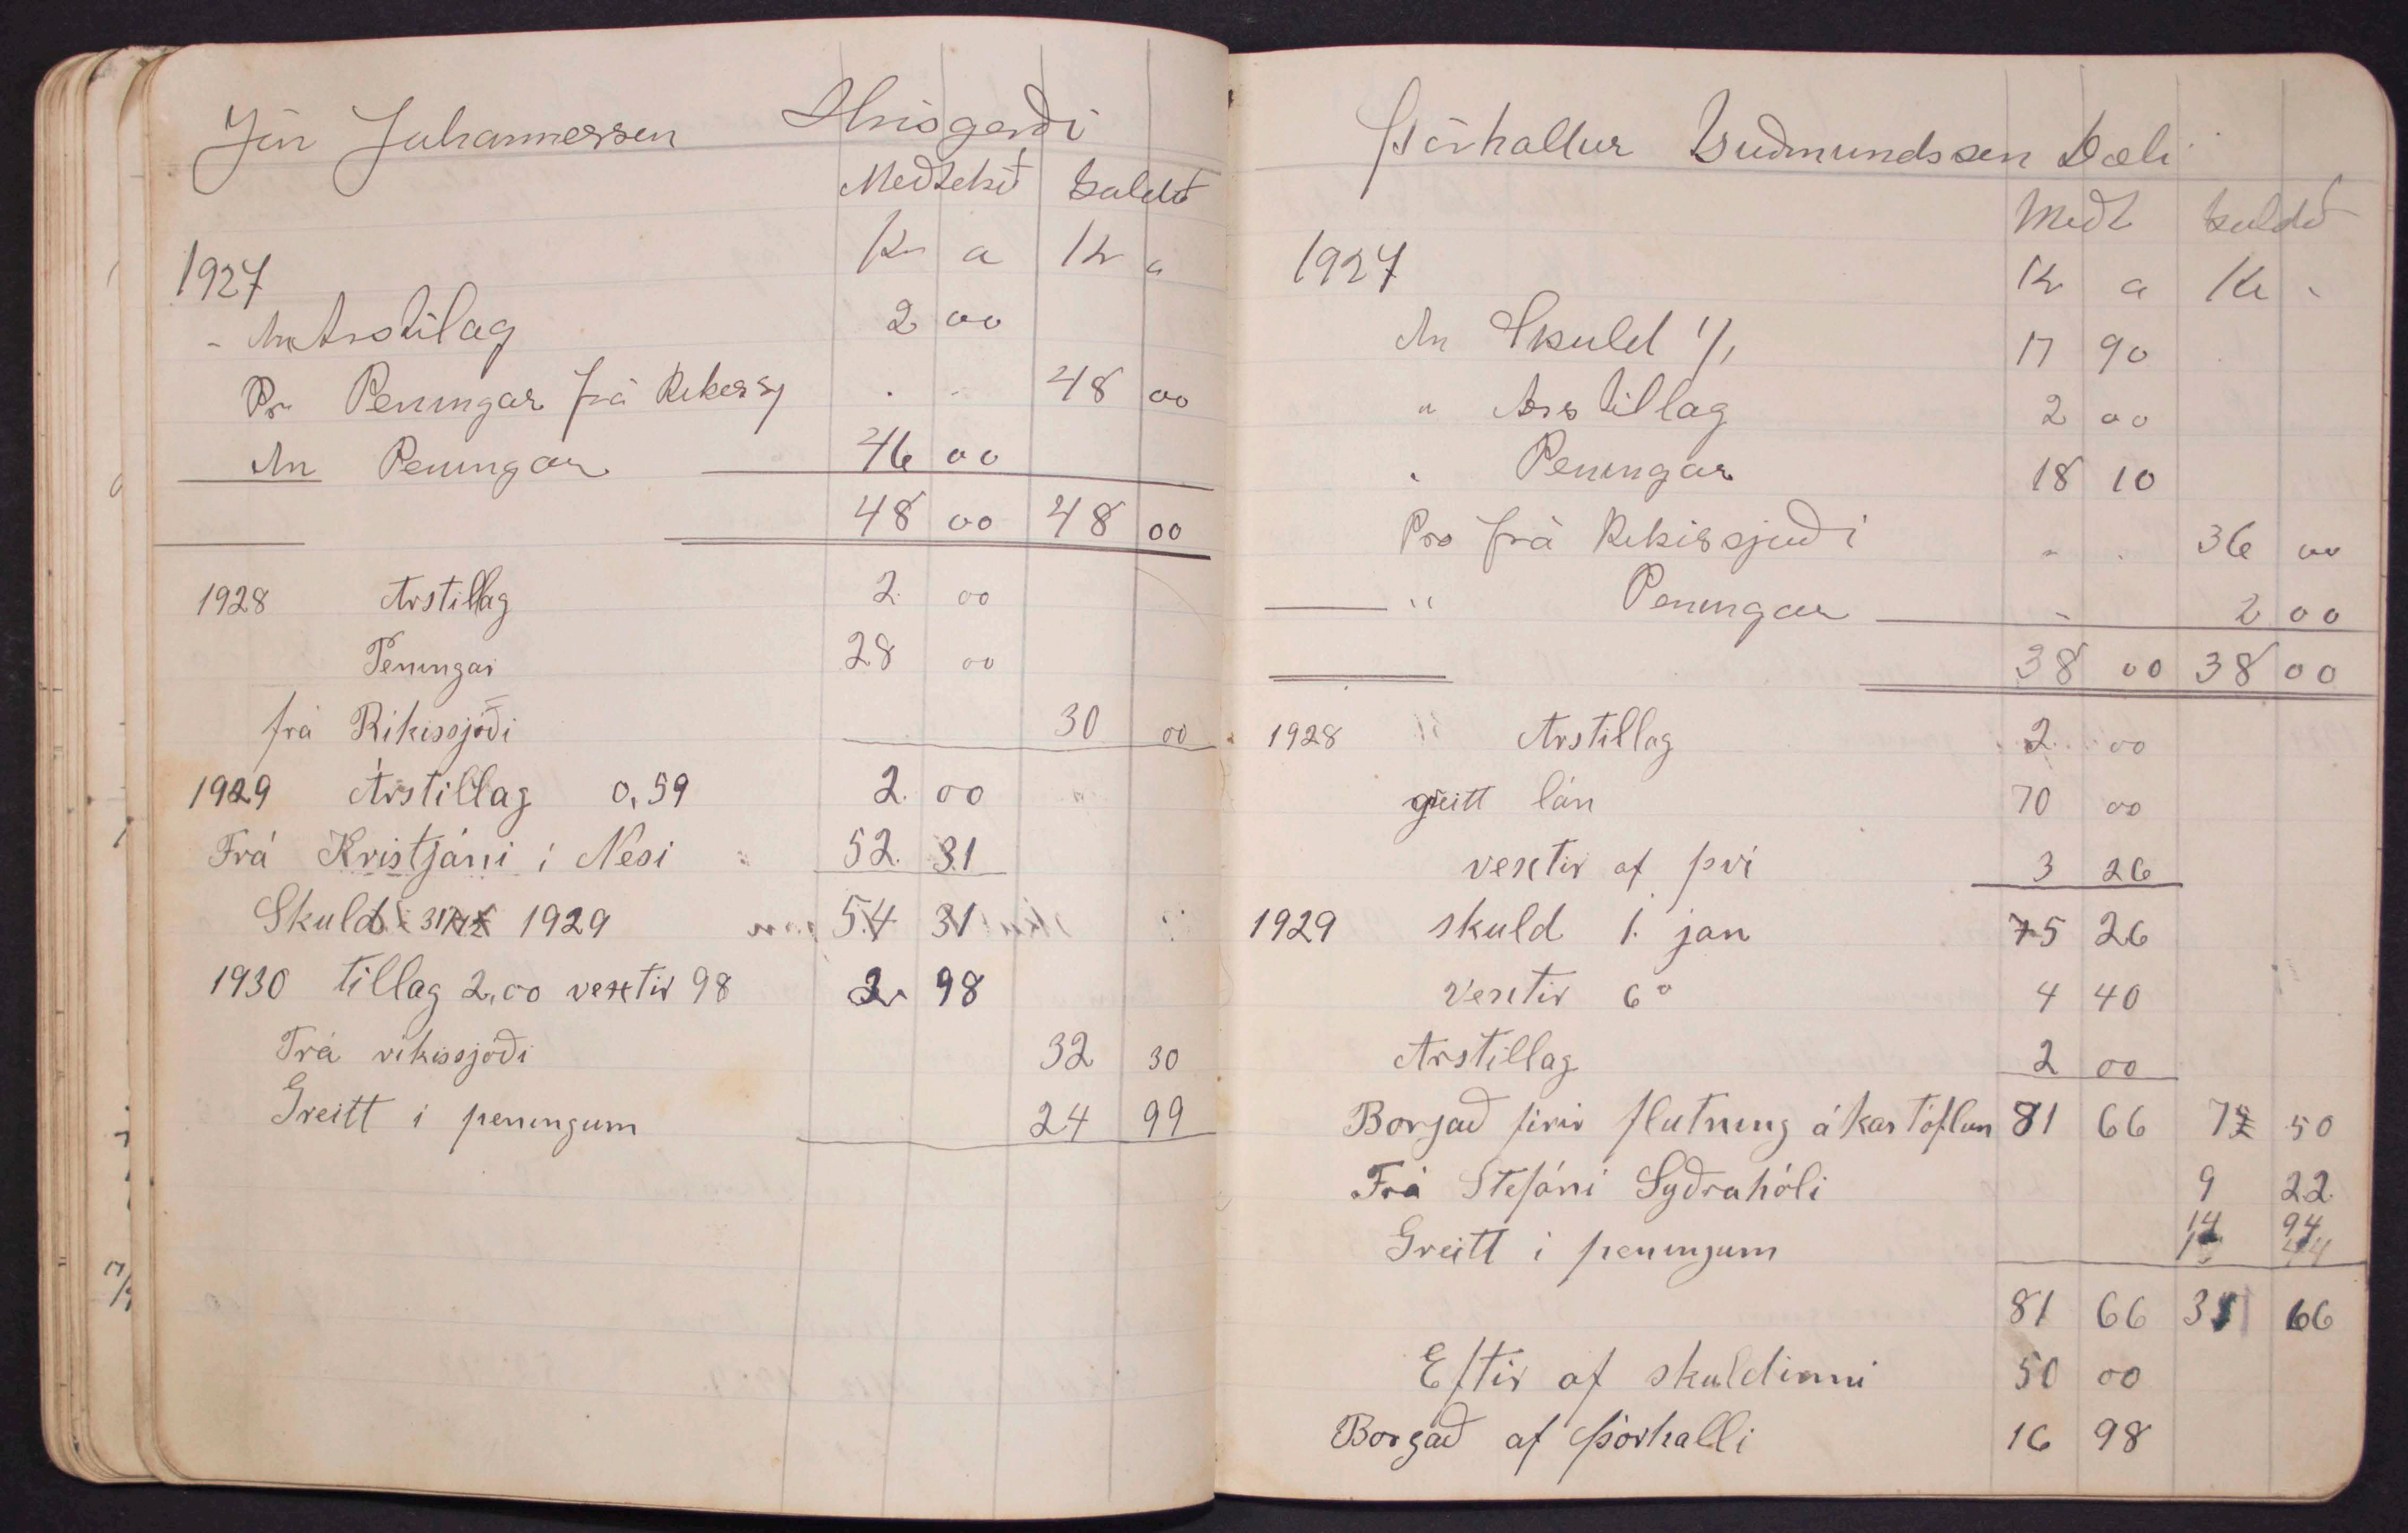 Jón Jóhannesson Hrísgerði
Meðtekið Goldið
Kr a Kr a
1927
- An Arstilag 2 00
Pr Peningar frá Rikess 48 00
An Peningar 46 00
48 00 48 00
1928 Arstillag 2. 00
Peningar 28 00
frá Rikissjóði 30 00
1929 Árstillag 0,59 2. 00
Frá Kristjáni i Nesi 52. 31
Skuld 31/12 1929 54 31
1930 tillag 2,00 vextir 98 2 98
Frá rikissjóði 32 30
Greitt i peningum 24 99
Þórhallur Guðmundsson Dæli
Meðt Goldið
1927
Kr a Kr
An Skuld 1/1 17 90
" Arstillag 2 00
" Peningar 18 10
Pro frá Rikissjóði 36 00
" Peningar 2 00
38 00 38 00
1928 " Arstillag 2. 00
greitt lán 70 00
vextir af því 3 26
1929 skuld 1. jan 75 26
Vextir 6° 4 40
Arstillag 2 00
Borgað firir flutning á kartöflum 81 66 7 50
Frá Stefáni Syðrahóli 9 22
14 94
Greitt i peningum
81 66 31 66
Eftir af skuldinni 50 00
Borgað af Þórhalli 16 98